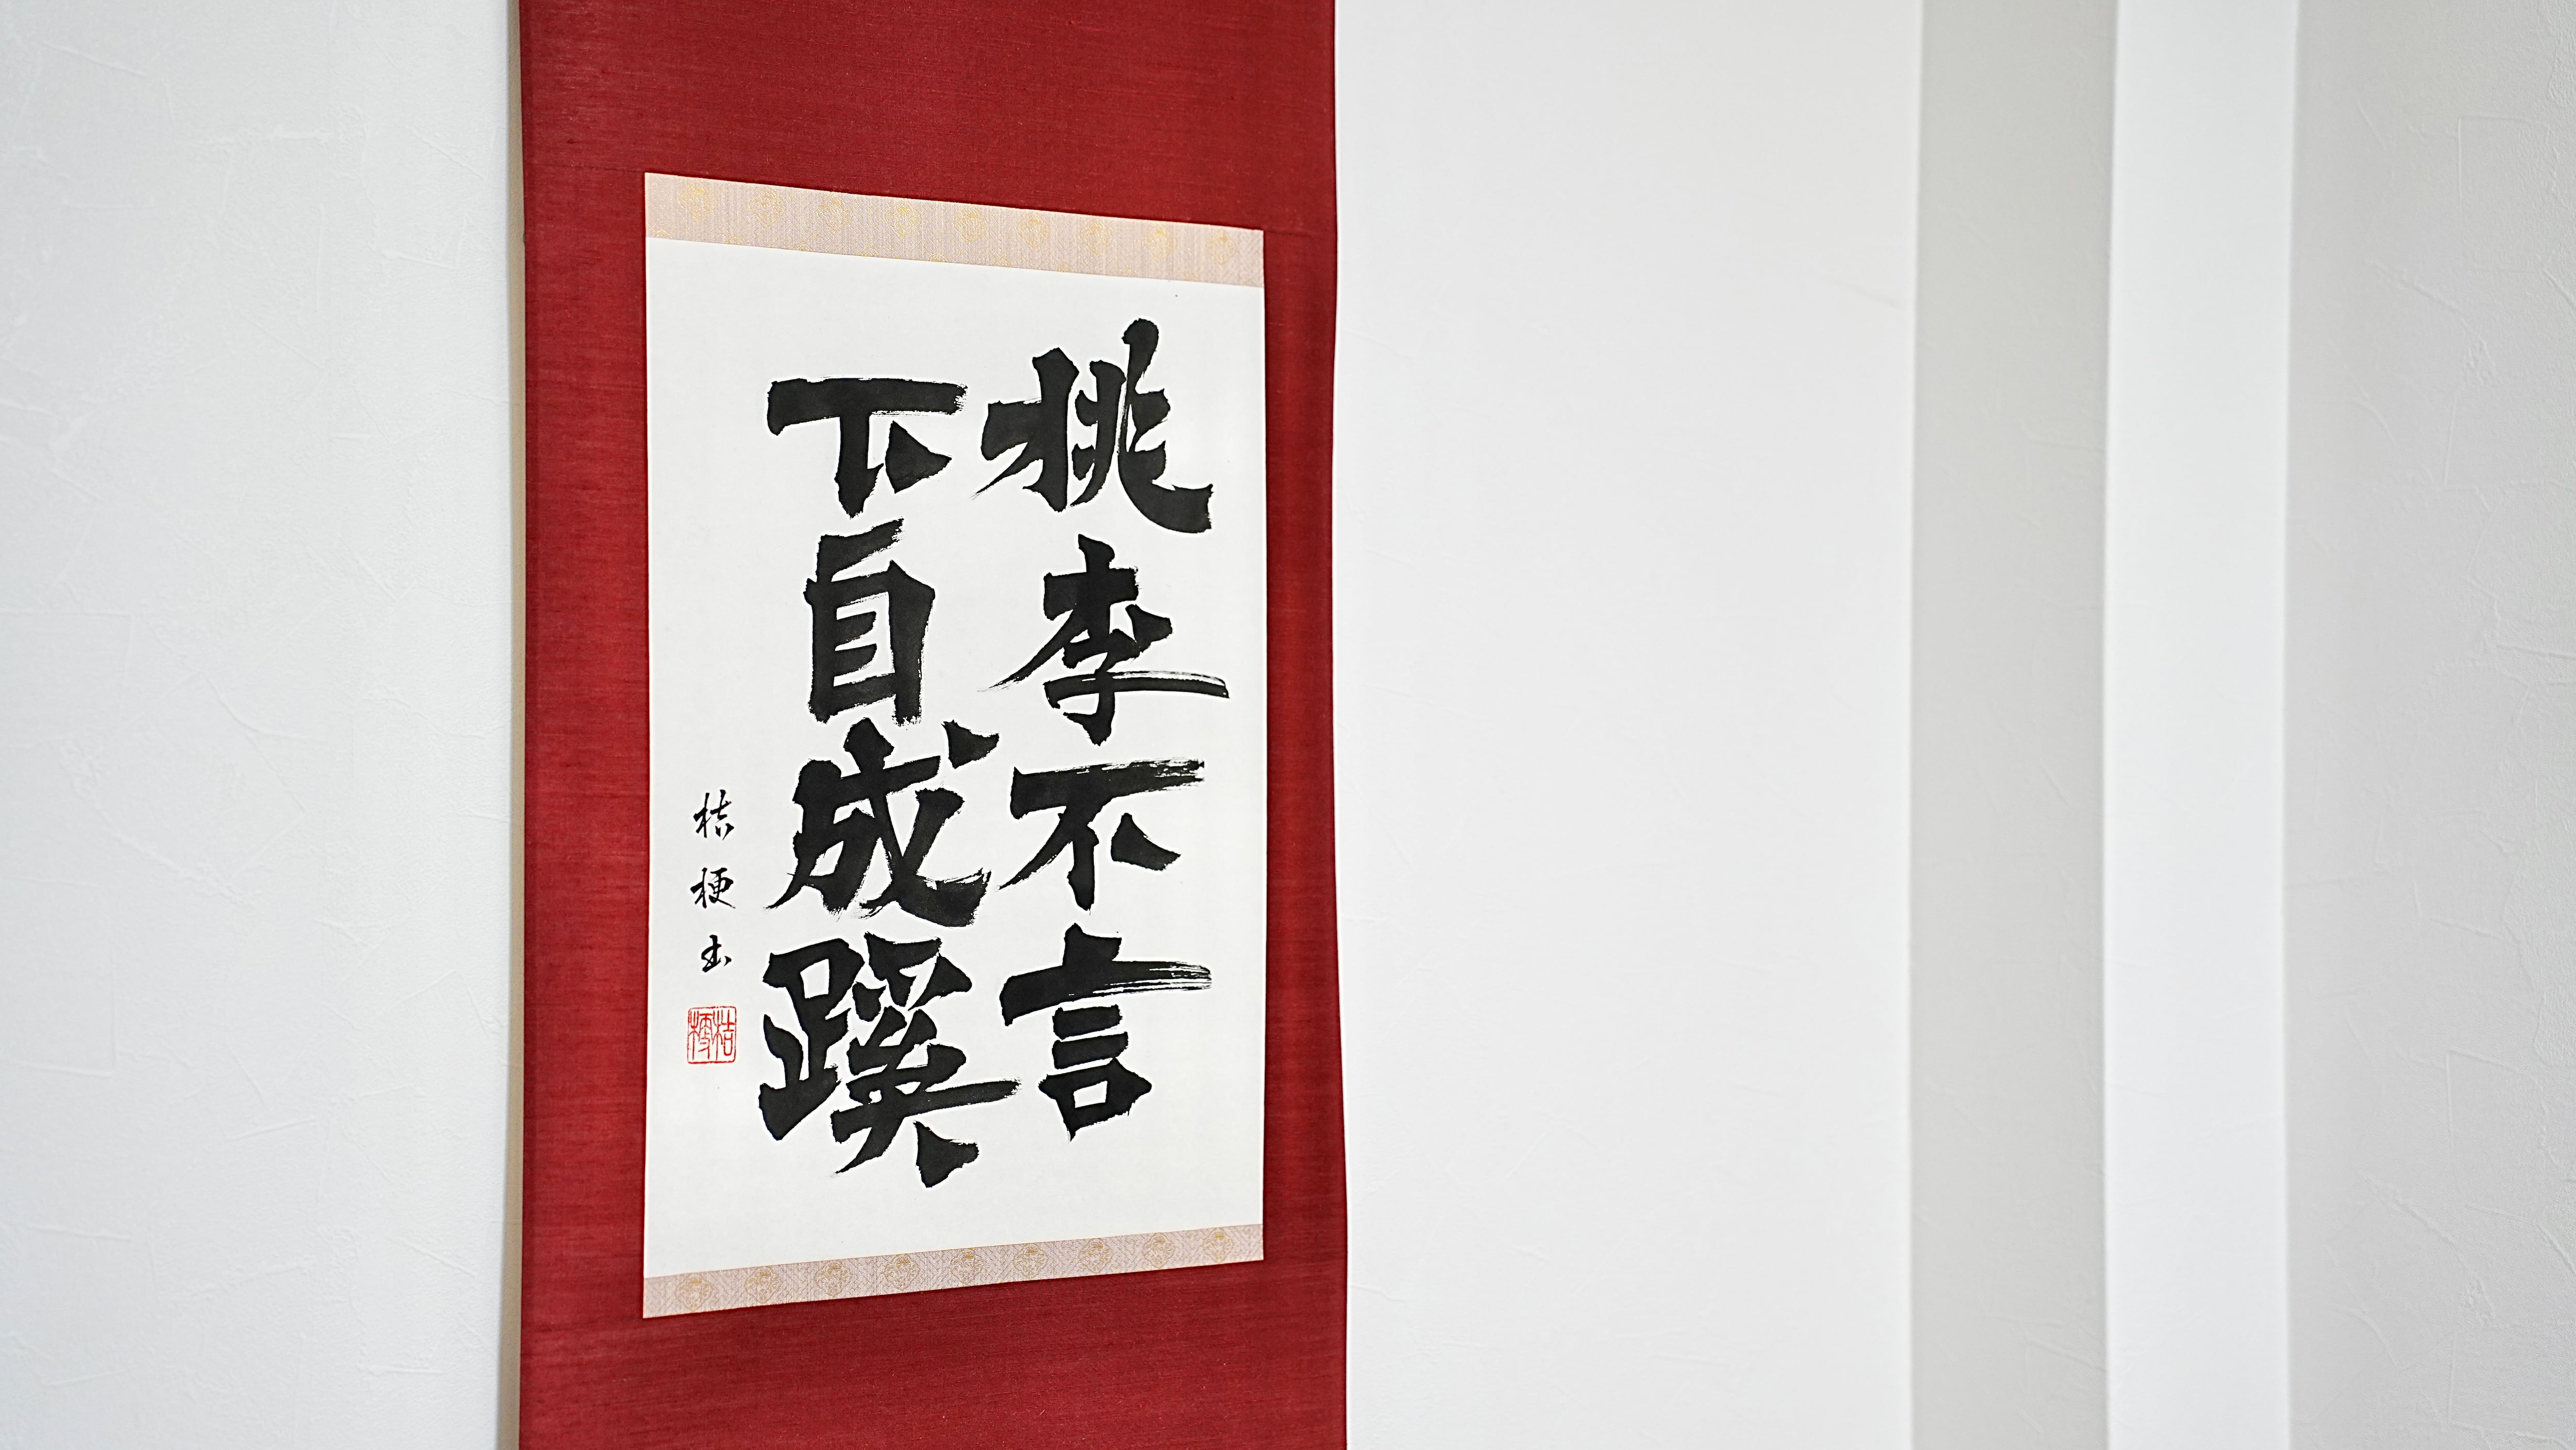 桃李不言
下自成蹊
桔梗書
桔梗